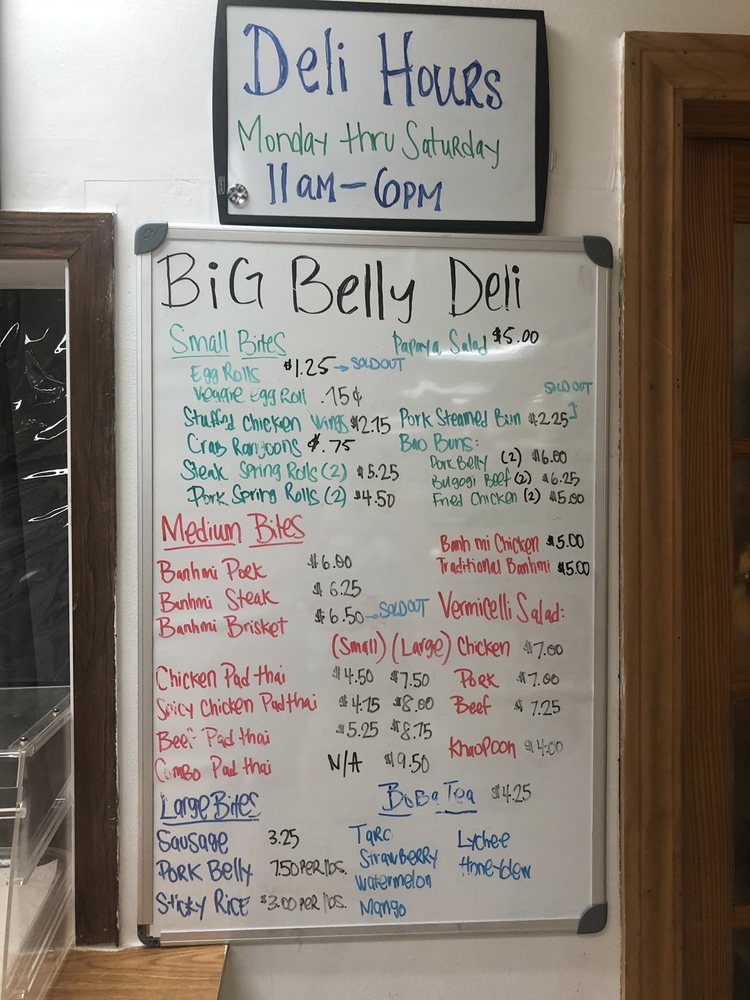 Deli Hours
Monday thru Saturday
11AM-6PM
BiG Belly Deli
Small Bites
Egg Rolls $1.25 → SOLDOUT
Veggie Egg Roll .75¢
Stuffed Chicken Wings $2.75
Crab Rangoons $.75
Steak Spring Rolls (2) $5.25
Pork Spring Rolls (2) $4.50
Papaya Salad $5.00
SOLD OUT
Pork Steamed Bun $2.25
Bao Buns:
Pork Belly (2) $6.00
Bugogi Beef (2) $6.25
Fried Chicken (2) $5.00
Medium Bites
Banhmi Pork $6.00
Banhmi Steak $6.25
Banhmi Brisket $6.50 → SOLDOUT
Banh mi Chicken $5.00
Traditional Banhmi $5.00
(Small) (Large)
Chicken Pad thai $4.50 $7.50
Spicy Chicken Pad thai $4.75 $8.00
Beef Pad thai $5.25 $8.75
Combo Pad thai N/A $9.50
Vermicelli Salad:
Chicken $7.00
Pork $7.00
Beef $7.25
Khaopoon $4.00
Large Bites
Sausage 3.25
PORK Belly 7.50 PER lbs.
Sticky RICE $3.00 PER lbs.
BuBa Tea $4.25
Taro
Strawberry
Watermelon
Mango
Lychee
Honeydew